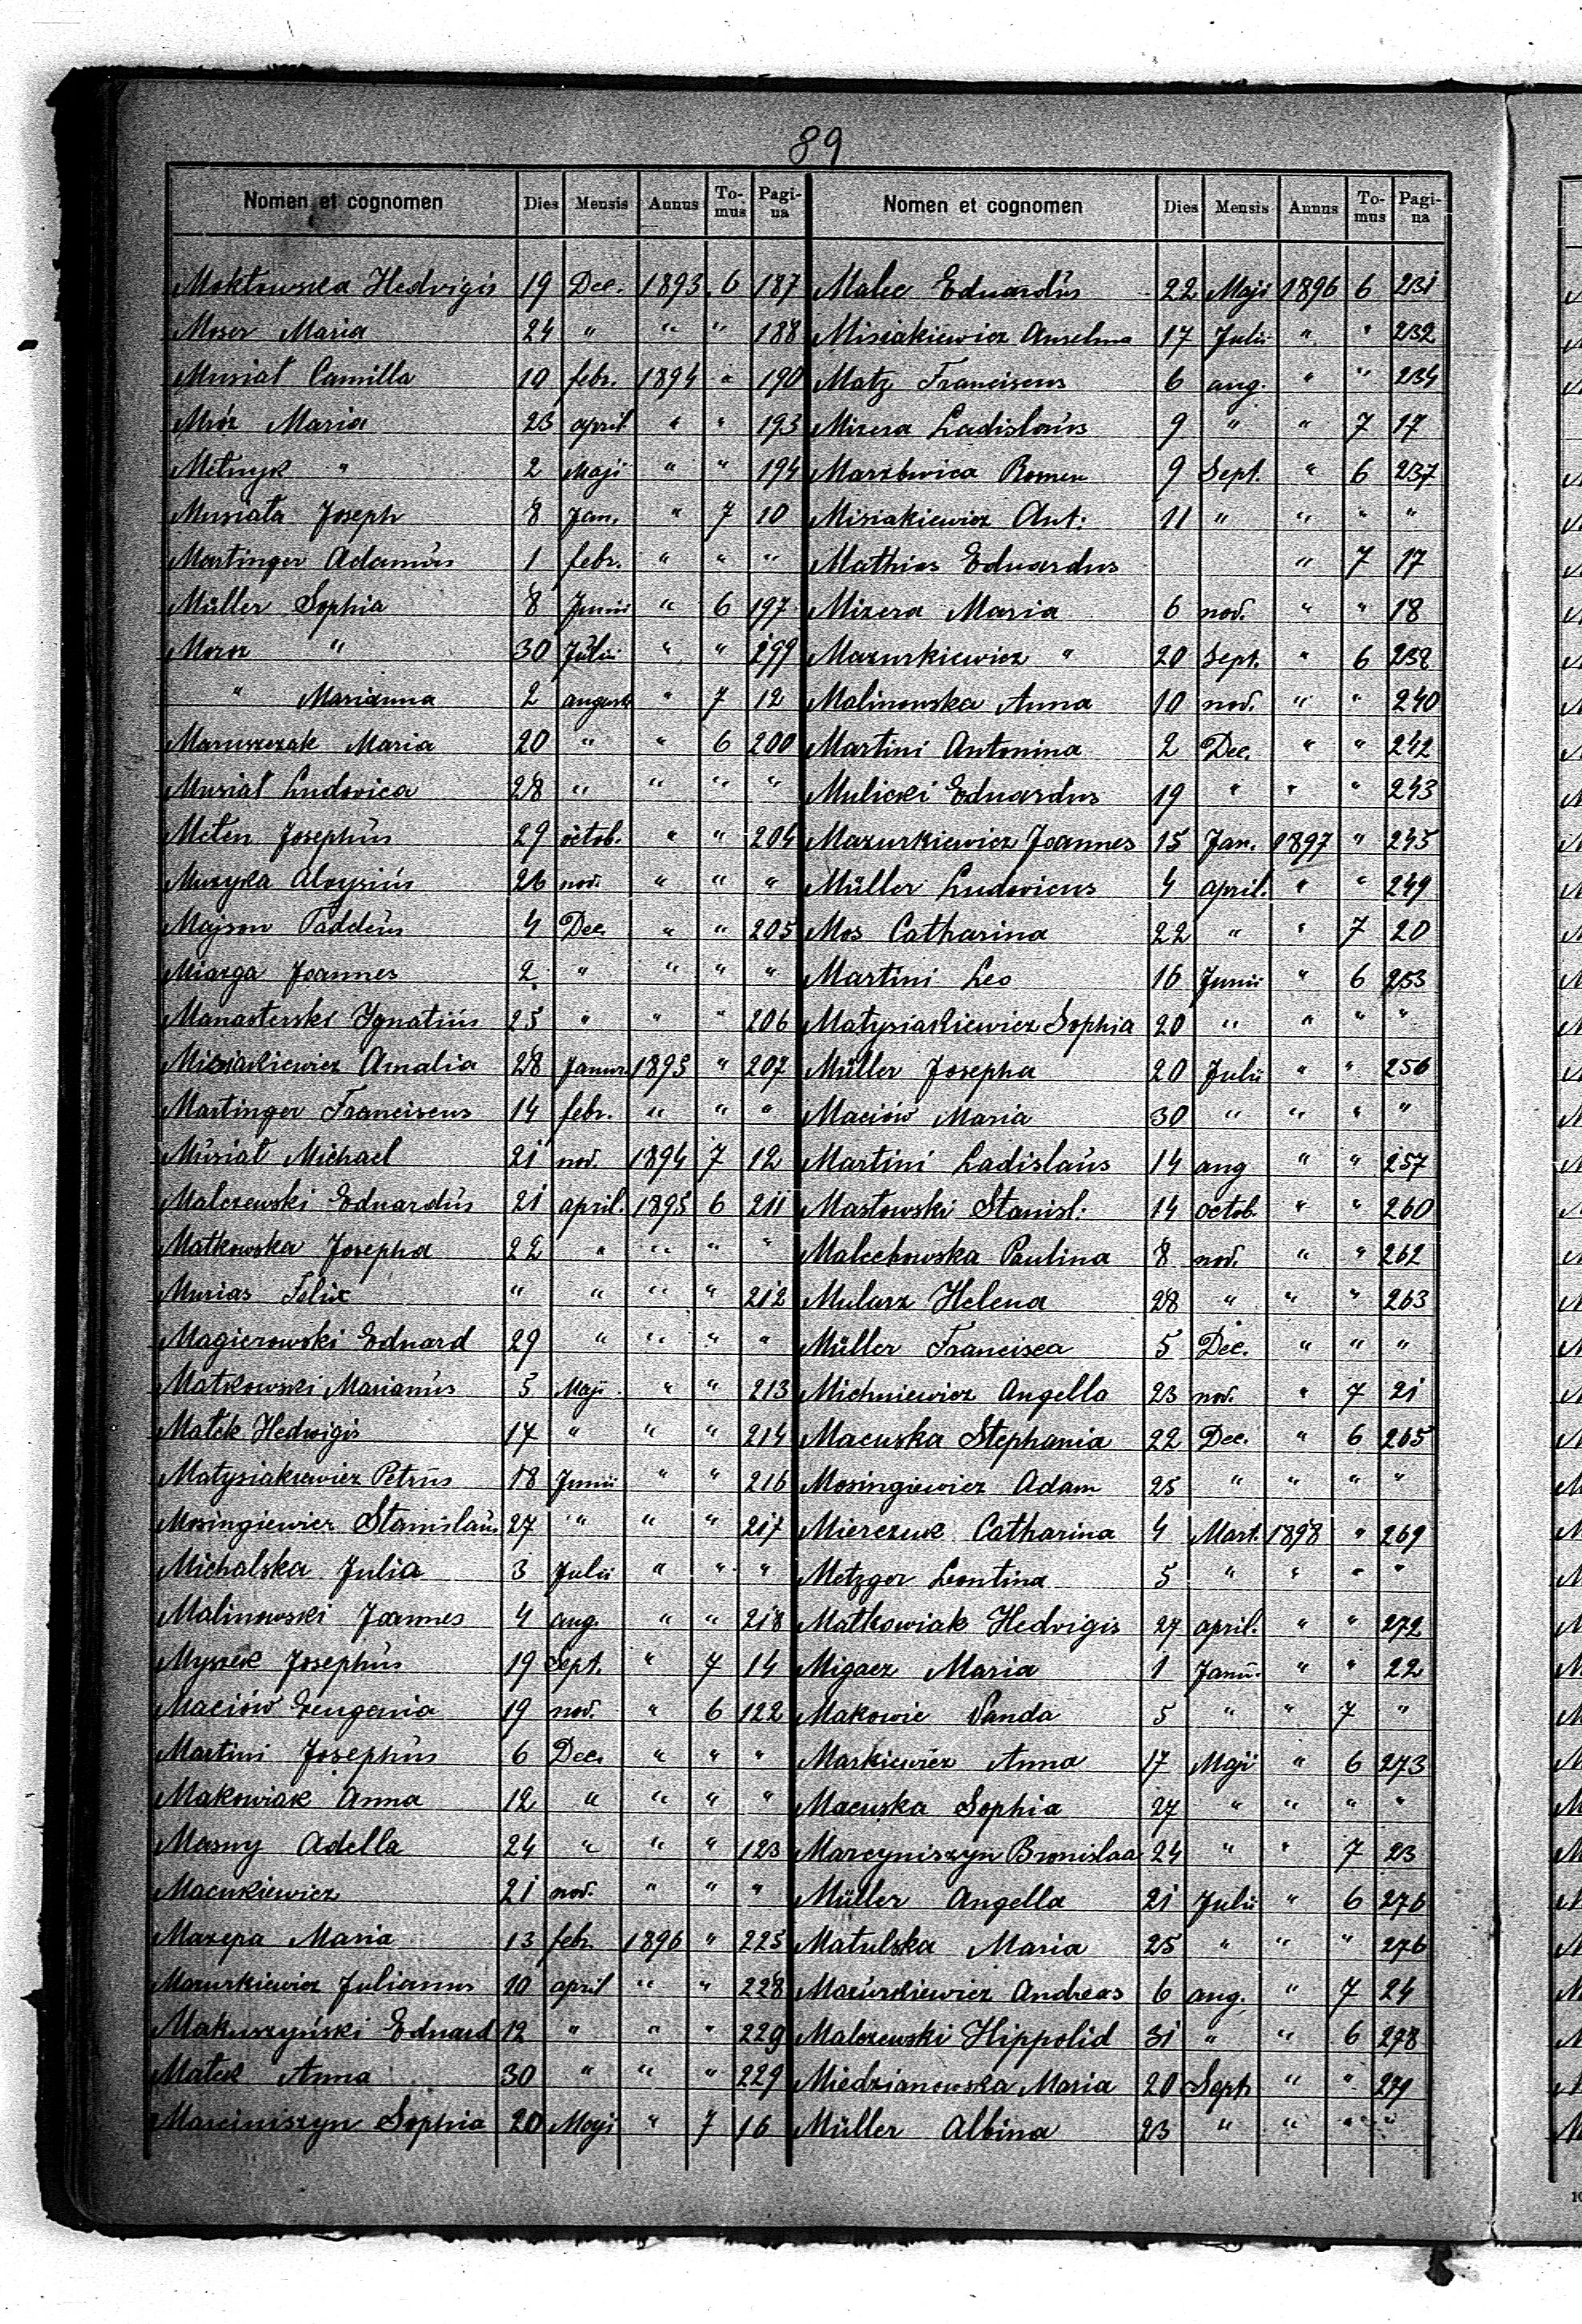 89
Nomen et cognomen Dies Mensis Annus To-mus Pagi-na
Moktowska Hedvigis 19 Dec. 1893 6 187
Moser Maria 24 " " " 188
Musiał Camilla 19 febr. 1894 " 190
Mróz Maria 23 april " " 193
Metnyk " 2 Maji " " 194
Musiała Joseph 8 Jan. " 7 10
Martinger Adamùs 1 febr. " " "
Müller Sophia 8 Junii " 6 197
Moroz " 30 Julii " " 299
" Marianna 2 august " 7 12
Maruszczak Maria 20 " " 6 200
Musiał Ludovica 28 " " " "
Meten Josephùs 29 octob. " " 204
Muzyka Aloysiùs 26 nov. " " "
Majson Taddeùs 4 Dec. " " 205
Miarga Joannes 2 " " " "
Manasterski Ignatiùs 25 " " " 206
Misiakiewicz Amalia 28 Januar. 1895 " 207
Martinger Franciscus 14 febr. " " "
Mùsiał Michael 21 nov. 1894 7 12
Malczewski Eduardùs 21 april. 1895 6 211
Matkowska Josepha 22 " " " "
Murias Felix " " " " 212
Magierowski Eduard 29 " " " "
Matkowski Marianùs 5 Maji " " 213
Matek Hedwigis 17 " " " 214
Matysiakiewicz Petrùs 18 Junii " " 216
Mosingiewicz Stanislaùs 27 " " " 217
Michalska Julia 3 Julii " " "
Malinowski Joannes 4 aug. " " 218
Myszek Josephùs 19 Sept. " 7 14
Maciów Eugenia 19 nov. " 6 122
Martini Josephùs 6 Dec. " " "
Makowiak Anna 12 " " " "
Masny Adella 24 " " " 123
Macukiewicz 21 nov. " " "
Mazepa Maria 13 febr. 1896 " 225
Mazurkiewicz Julianus 10 april " " 228
Makuszyński Eduard 12 " " " 229
Matek Anna 30 " " " 229
Marciniszyn Sophia 20 Maji " 7 16
Nomen et cognomen Dies Mensis Annus To-mus Pagi-na
Malec Eduardùs 22 Maji 1896 6 231
Misiakiewicz Anselma 17 Julii " " 232
Matz Franciscus 6 aug. " " 234
Mizera Ladislaùs 9 " " 7 17
Marzbwica Roman 9 Sept. " 6 237
Misiakiewicz Ant: 11 " " " "
Mathias Eduardus " 7 17
Mizera Maria 6 nov. " " 18
Mazurkiewicz " 20 Sept. " 6 238
Malinowska Anna 10 nov. " " 240
Martini Antonina 2 Dec. " " 242
Mulicki Eduardus 19 " " " 243
Mazurkiewicz Joannes 15 Jan. 1897 " 245
Müller Ludovicus 4 april. " " 249
Mos Catharina 22 " " 7 20
Martini Leo 16 Junii " 6 253
Matysiakiewicz Sophia 20 " " " "
Müller Josepha 20 Julii " " 256
Maciów Maria 30 " " " "
Martini Ladislaùs 14 aug " " 257
Mastowski Stanisl: 14 octob. " " 260
Malechowska Paulina 8 nov. " " 262
Mularz Helena 28 " " " 263
Müller Francisca 5 Dec. " " "
Michniewicz Angella 23 nov. " 7 21
Macuska Stephania 22 Dec. " 6 265
Mosingiewicz Adam 25 " " " "
Mierczuk Catharina 4 Mart. 1898 " 269
Metzger Leontina 5 " " " "
Matkowiak Hedvigis 27 april. " " 272
Migacz Maria 1 Janù. " " 22
Makowie Vanda 5 " " 7 "
Markiewicz Anna 17 Maji " 6 273
Macuska Sophia 27 " " " "
Marcyniszyn Bronislaa 24 " " 7 23
Müller Angella 21 Julii " 6 276
Matulska Maria 25 " " " 276
Mazùrkiewicz Andreas 6 aug. " 7 24
Malczewski Hippolid 31 " " 6 278
Miedzianowska Maria 20 Sept " " 279
Müller Albina 23 " " " "